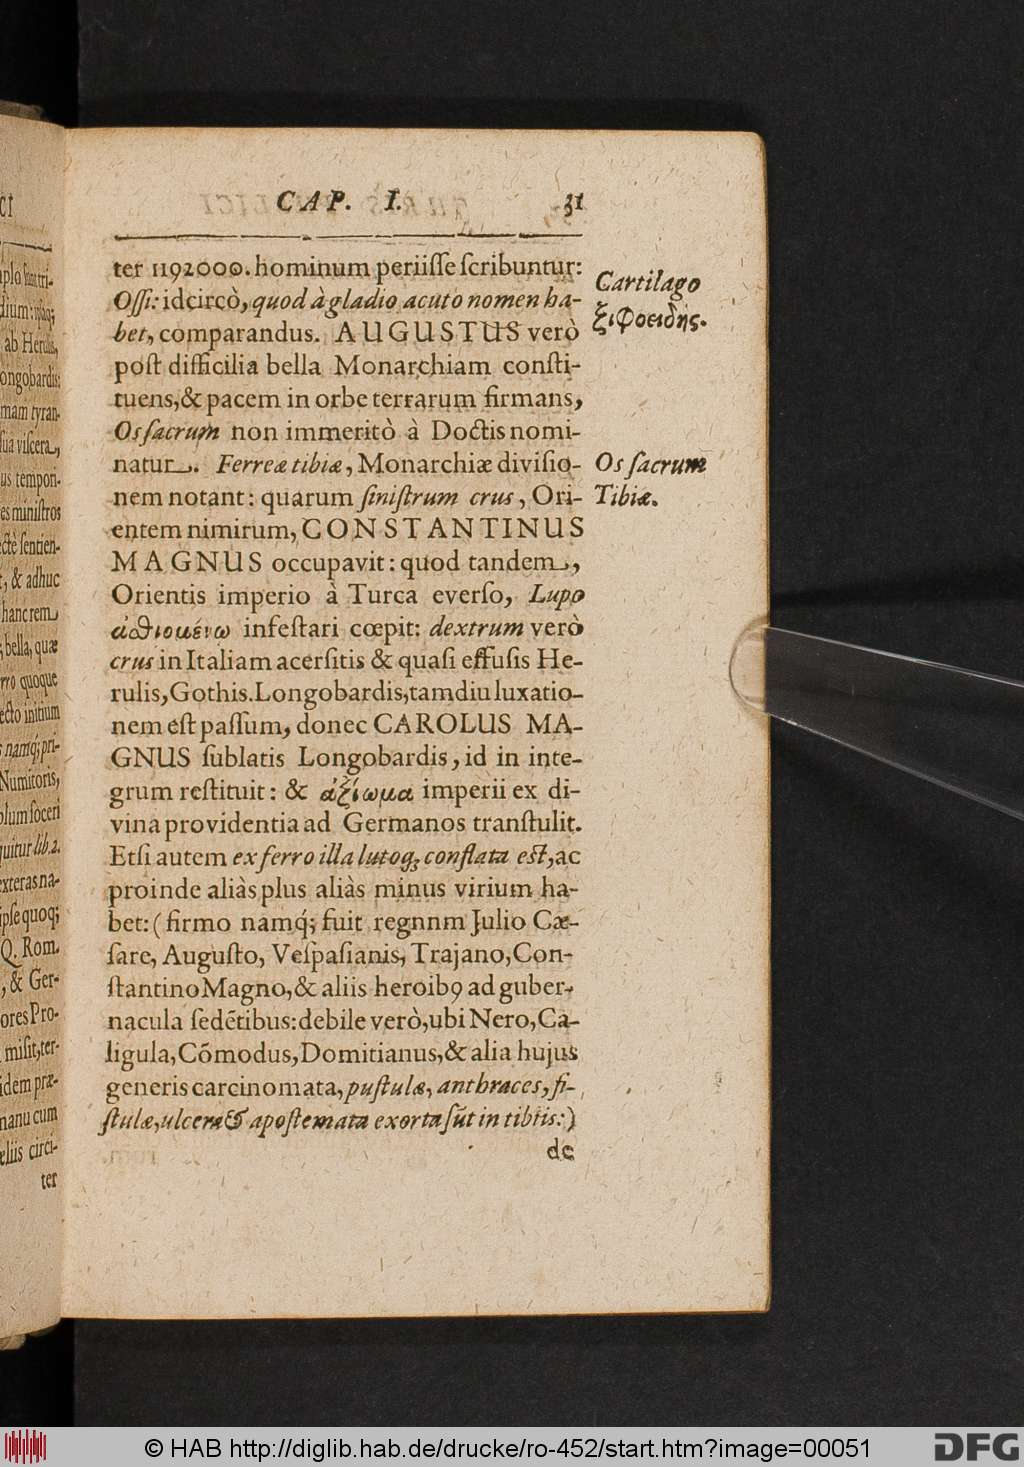 CAP. I. 31
ter 1192000. hominum periiſſe ſcribuntur:
Oſſi: idcircò, quod à gladio acuto nomen ha-
bet, comparandus. AUGUSTUS verò
poſt difficilia bella Monarchiam conſti-
tuens, & pacem in orbe terrarum firmans,
Os ſacrum non immeritò à Doctis nomi-
natur. Ferreæ tibiæ, Monarchiæ diviſio-
nem notant: quarum ſiniſtrum crus, Ori-
entem nimirum, CONSTANTINUS
MAGNUS occupavit: quod tandem,
Orientis imperio à Turca everſo, Lupo
infeſtari cœpit: dextrum verò
crus in Italiam acerſitis & quaſi effuſis He-
rulis, Gothis. Longobardis, tamdiu luxatio-
nem eſt paſſum, donec CAROLUS MA-
GNUS ſublatis Longobardis, id in inte-
grum reſtituit: & ἀξίωμα imperii ex di-
vina providentia ad Germanos tranſtulit.
Etſi autem ex ferro illa lutoq; conflata eſt, ac
proinde aliàs plus aliàs minus virium ha-
bet: (firmo namq́; fuit regnnm Julio Cæ-
ſare, Auguſto, Veſpaſianis, Trajano, Con-
ſtantino Magno, & aliis heroibꝰ ad guber-
nacula ſedẽtibus: debile verò, ubi Nero, Ca-
ligula, Cõmodus, Domitianus, & alia hujus
generis carcinomata, puſtulæ, anthraces, fi-
ſtulæ, ulcera & apoſtemata exorta ſũt in tibiis:)
de
Cartilago
ξιφοειδὴς.
Os ſacrum
Tibiæ.
ct
ab Herulis,
ongobardis:
mam tyran-
ſuâ viſcera,
us tempori-
es miniſtros
ectè ſentien-
t, & adhuc
hanc rem
bella, quæ
rro quoque
ecto initium
namq́; pri-
Numitoris,
olum ſoceri
quitur lib. 2.
exteras na-
ipſe quoq;
Q. Rom.
, & Ger-
ores Pro-
miſit, ter-
idem præ-
manu cum
eliis circi-
ter
© HAB http://diglib.hab.de/drucke/ro-452/start.htm?image=00051
DFG